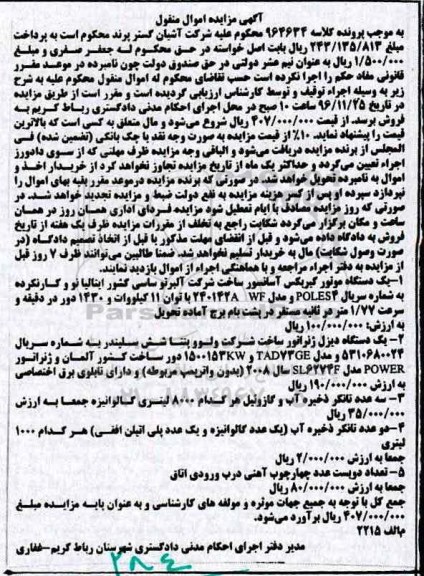 آگهی مزایده اموال منقول
به موجب پرونده کلاسه ۹۶۴۶۳۴ محکوم علیه شرکت آشیان گستر پرند محکوم است به پرداخت
مبلغ ۲۴۳/۱۳۵/۸۱۳ ریال بابت اصل خواسته در حق محکوم له جعفر صفری و مبلغ
۱/۵۰۰/۰۰۰ ریال به عنوان نیم عشر دولتی در حق صندوق دولت چون نامبرده در موعد مقرر
قانونی مفاد حکم را اجرا نکرده است حسب تقاضای محکوم له اموال منقول محکوم علیه به شرح
زیر به وسیله اجراء توقیف و توسط کارشناس ارزیابی گردیده است و مقرر است از طریق مزایده
در تاریخ ۹۶/۱۱/۲۵ ساعت ۱۰ صبح در محل اجرای احکام مدنی دادگستری رباط کریم به
فروش برسد. از قیمت ۴۰۷/۰۰۰/۰۰۰ ریال شروع می‌شود و مال متعلق به کسی است که بالاترین
قیمت را پیشنهاد نماید. ۱۰٪ از قیمت مزایده به صورت وجه نقد یا چک بانکی (تضمین شده) فی
المجلس از برنده مزایده دریافت می‌شود و الباقی وجه مزایده ظرف مهلتی که از سوی دادورز
اجراء تعیین می‌گردد و حداکثر یک ماه از تاریخ مزایده تجاوز نخواهد کرد از خریدار اخذ و
اموال به نامبرده تحویل خواهد شد. در صورتی که برنده مزایده درموعد مقرر بقیه بهای اموال را
نپردازد سپرده او پس از کسر هزینه مزایده به نفع دولت ضبط و مزایده تجدید خواهد شد. در
صورتی که روز مزایده مصادف با ایام تعطیل شود مزایده فردای اداری همان روز در همان
ساعت و مکان برگزار می‌گردد شکایت راجع به تخلف از مقررات مزایده ظرف یک هفته از تاریخ
فروش به دادگاه داده می‌شود و قبل از انقضای مهلت مذکور یا قبل از اتخاذ تصمیم دادگاه (در
صورت وصول شکایت) مال به خریدار تسلیم نخواهد شد. ضمنا طالبین می‌توانند ظرف ۷ روز قبل
از مزایده به دفتر اجراء مراجعه و با هماهنگی اجراء از اموال بازدید نمایند.
۱-یک دستگاه موتور گیربکس آسانسور ساخت شرکت آلبرتو ساسی کشور ایتالیا نو و کارنکرده
به شماره سریال POLES۴ و مدل WF ۲۴۰۱۴۲۸ با توان ۱۱ کیلووات و ۱۴۳۰ دور در دقیقه و
سرعت ۱/۷۷ متر در ثانیه مستقر در پشت بام برج آماده تحویل
به ارزش: ۱۰۰/۰۰۰/۰۰۰ ریال
۲-یک دستگاه دیزل ژنراتور ساخت شرکت ولوو پنتا شش سیلندر به شماره سریال
۵۳۱۰۶۸۰۰۲۴ و مدل TAD۷۳GE و ۱۵۳KW ۱۵۰۰ دور ساخت کشور آلمان و ژنراتور
POWER مدل SL۶۲۷۴F سال ۲۰۰۸ (بدون واترپمپ مربوطه) و دارای تابلوی برق اختصاصی
به ارزش ۱۹۰/۰۰۰/۰۰۰ ریال
۳-سه عدد تانکر ذخیره آب و گازوئیل هر کدام ۸۰۰۰ لیتری گالوانیزه جمعا به ارزش
۳۵/۰۰۰/۰۰۰ ریال
۴-دو عدد تانکر ذخیره آب (یک عدد گالوانیزه و یک عدد پلی اتیلن افقی) هر کدام ۱۰۰۰
لیتری
جمعا به ارزش ۲/۰۰۰/۰۰۰ ریال
۵-تعداد دویست عدد چهارچوب آهنی درب ورودی اتاق
جمعا به ارزش ۸۰/۰۰۰/۰۰۰ ریال
جمع کل با توجه به جمیع جهات موثره و مولفه های کارشناسی و به عنوان پایه مزایده مبلغ
۴۰۷/۰۰۰/۰۰۰ ریال برآورد می‌شود.
م/الف ۲۲۱۵
مدیر دفتر اجرای احکام مدنی دادگستری شهرستان رباط کریم-غفاری